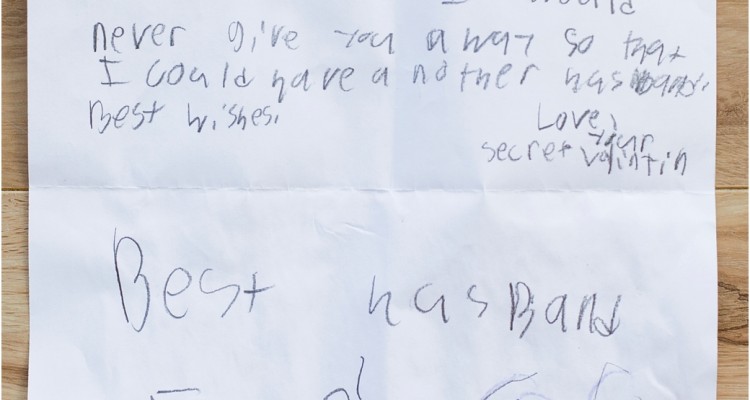 I would
never give you away so that
I could have a nother hasband.
Best wishes.
Love,
your
secret valintin
Best hasBand